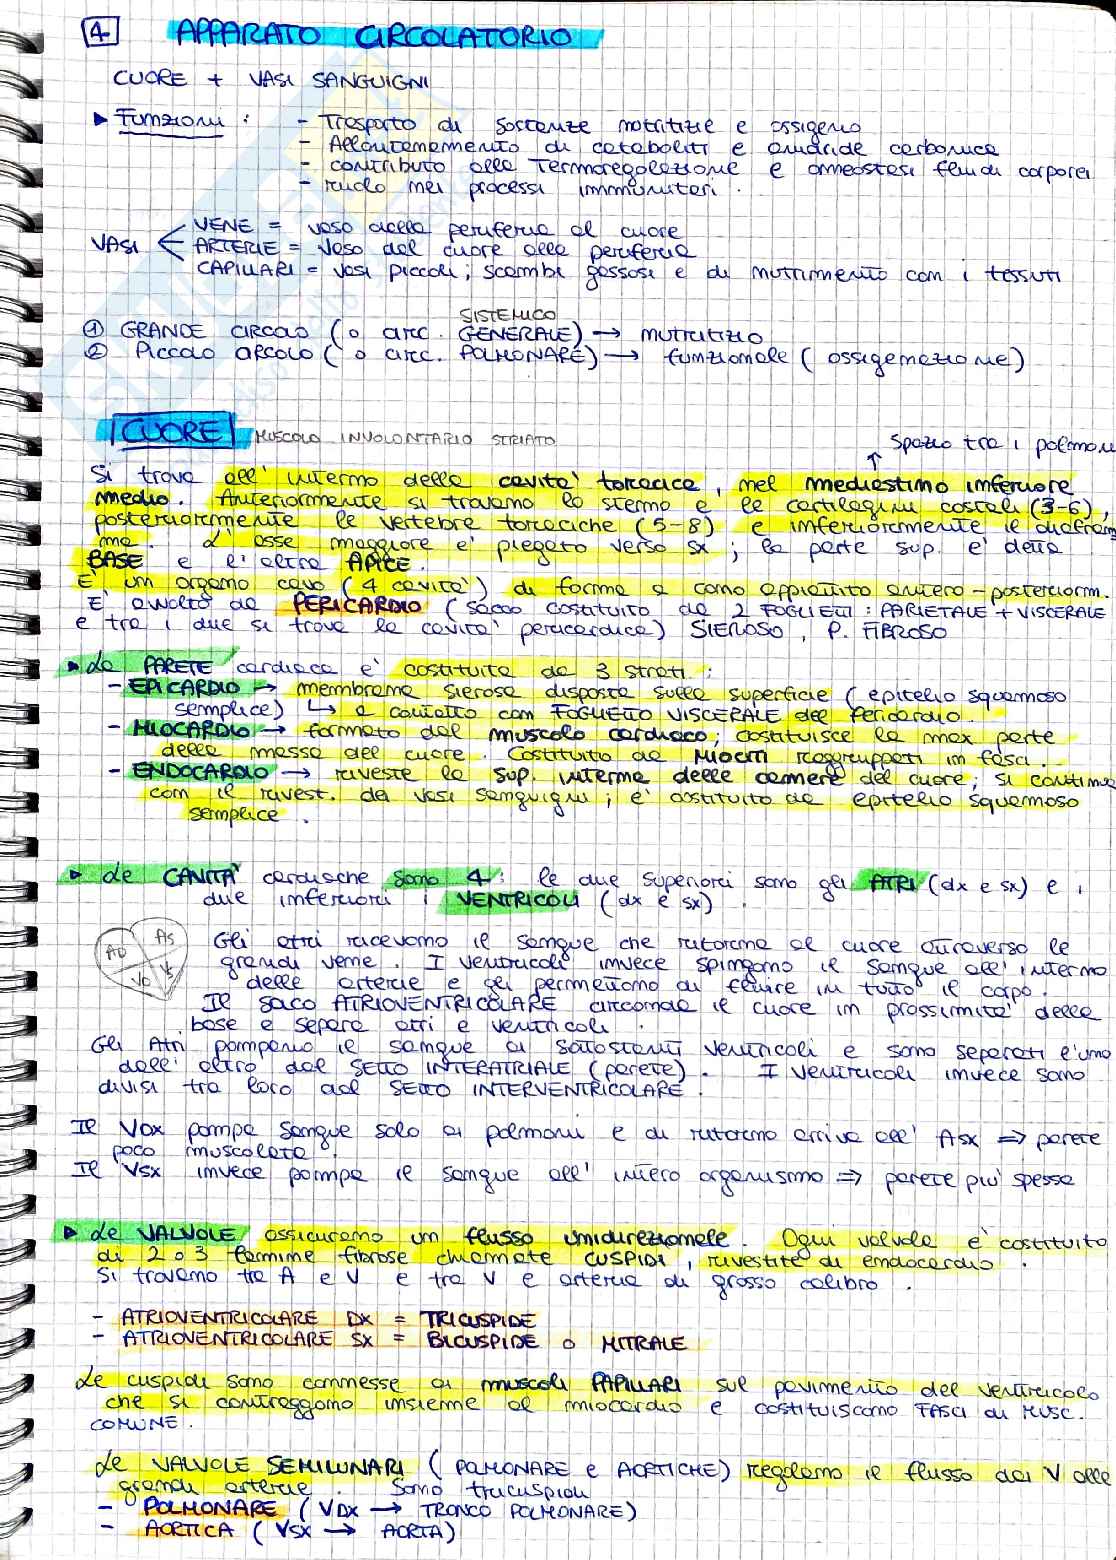 4 APPARATO CIRCOLATORIO
CUORE + VASI SANGUIGNI
▶ Funzioni : - Trasporto di sostanze nutritizie e ossigeno
- Allontanamento di cataboliti e anidride carbonica
- contributo alla Termoregolazione e omeostasi fluidi corporei
- ruolo nei processi immunitari.
VASI
VENE = vaso dalla periferia al cuore
ARTERIE = Vaso dal cuore alla periferia
CAPILLARI = vasi piccoli; scambi gassosi e di nutrimento con i tessuti
SISTEMICO
① GRANDE CIRCOLO (o circ. GENERALE) → nutritizio
② PICCOLO CIRCOLO (o circ. POLMONARE) → funzionale (ossigenazione)
CUORE MUSCOLO INVOLONTARIO STRIATO
↑ Spazio tra i polmoni
Si trova all'interno della cavità toracica, nel mediastino inferiore
medio. Anteriormente si trovano lo sterno e le cartilagini costali (3-6),
posteriormente le vertebre toraciche (5-8) e inferiormente il diafram
ma. L'asse maggiore è piegato verso sx; la parte sup. è detta
BASE e l'altra APICE.
E' un organo cavo (4 cavità) di forma a cono appiattito antero-posteriorm.
E' avvolto da PERICARDIO (sacco costituito da 2 FOGLIETTI: PARIETALE + VISCERALE
e tra i due si trova la cavità pericardica) SIEROSO, P. FIBROSO
▶ La PARETE cardiaca è costituita da 3 strati:
- EPICARDIO → membrana sierosa disposta sulla superficie (epitelio squamoso
semplice) ↳ a contatto con FOGLIETTO VISCERALE del Pericardio.
- MIOCARDIO → formato dal muscolo cardiaco; costituisce la max parte
della massa del cuore. Costituito da MIOCITI raggruppati in fasci.
- ENDOCARDIO → riveste la sup. interna delle camere del cuore; si continua
con il rivest. dei vasi sanguigni; è costituito da epitelio squamoso
semplice.
▶ Le CAVITÀ cardiache sono 4: le due superiori sono gli ATRI (dx e sx) e i
due inferiori i VENTRICOLI (dx e sx).
AD AS
VD VS
Gli atri ricevono il sangue che ritorna al cuore attraverso le
grandi vene. I ventricoli invece spingono il sangue all'interno
delle arterie e gli permettono di fluire in tutto il corpo.
Il solco ATRIOVENTRICOLARE circonda il cuore in prossimità della
base e separa atri e ventricoli.
Gli Atri pompano il sangue ai sottostanti ventricoli e sono separati l'uno
dall'altro dal SETTO INTERATRIALE (parete). I ventricoli invece sono
divisi tra loro dal SETTO INTERVENTRICOLARE.
Il VDX pompa sangue solo ai polmoni e di ritorno arriva all' Asx ⇒ parete
poco muscolata.
Il Vsx invece pompa il sangue all'intero organismo ⇒ parete più spessa
▶ Le VALVOLE assicurano un flusso unidirezionale. Ogni valvola è costituita
di 2 o 3 lamine fibrose chiamate CUSPIDI, rivestite di endocardio.
Si trovano tra A e V e tra V e arterie di grosso calibro.
- ATRIOVENTRICOLARE DX = TRICUSPIDE
- ATRIOVENTRICOLARE SX = BICUSPIDE o MITRALE
Le cuspidi sono connesse ai muscoli PAPILLARI sul pavimento del ventricolo
che si contraggono insieme al miocardio e costituiscono FASCI di MUSC.
COMUNE.
Le VALVOLE SEMILUNARI (POLMONARE e AORTICHE) regolano il flusso dai V alle
grandi arterie. Sono tricuspidi
- POLMONARE (VDX → TRONCO POLMONARE)
- AORTICA (VSX → AORTA)